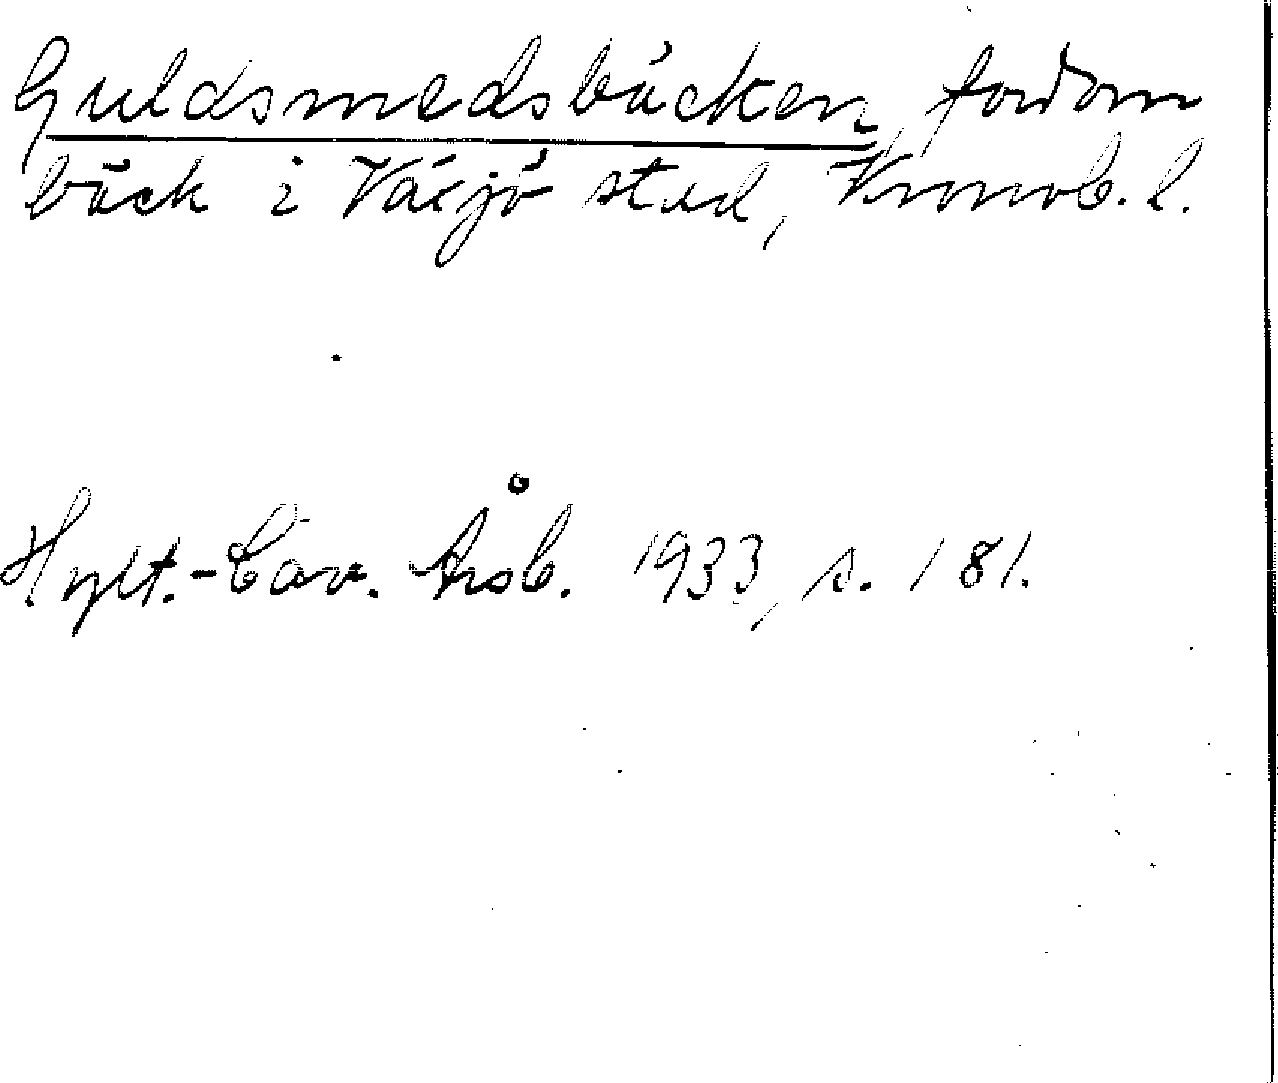 Guldsmedsbäcken fordom
bäck i Växjö stad, Kronob. l.
Hylt.-Cav. Årsb. 1933, s. 181.